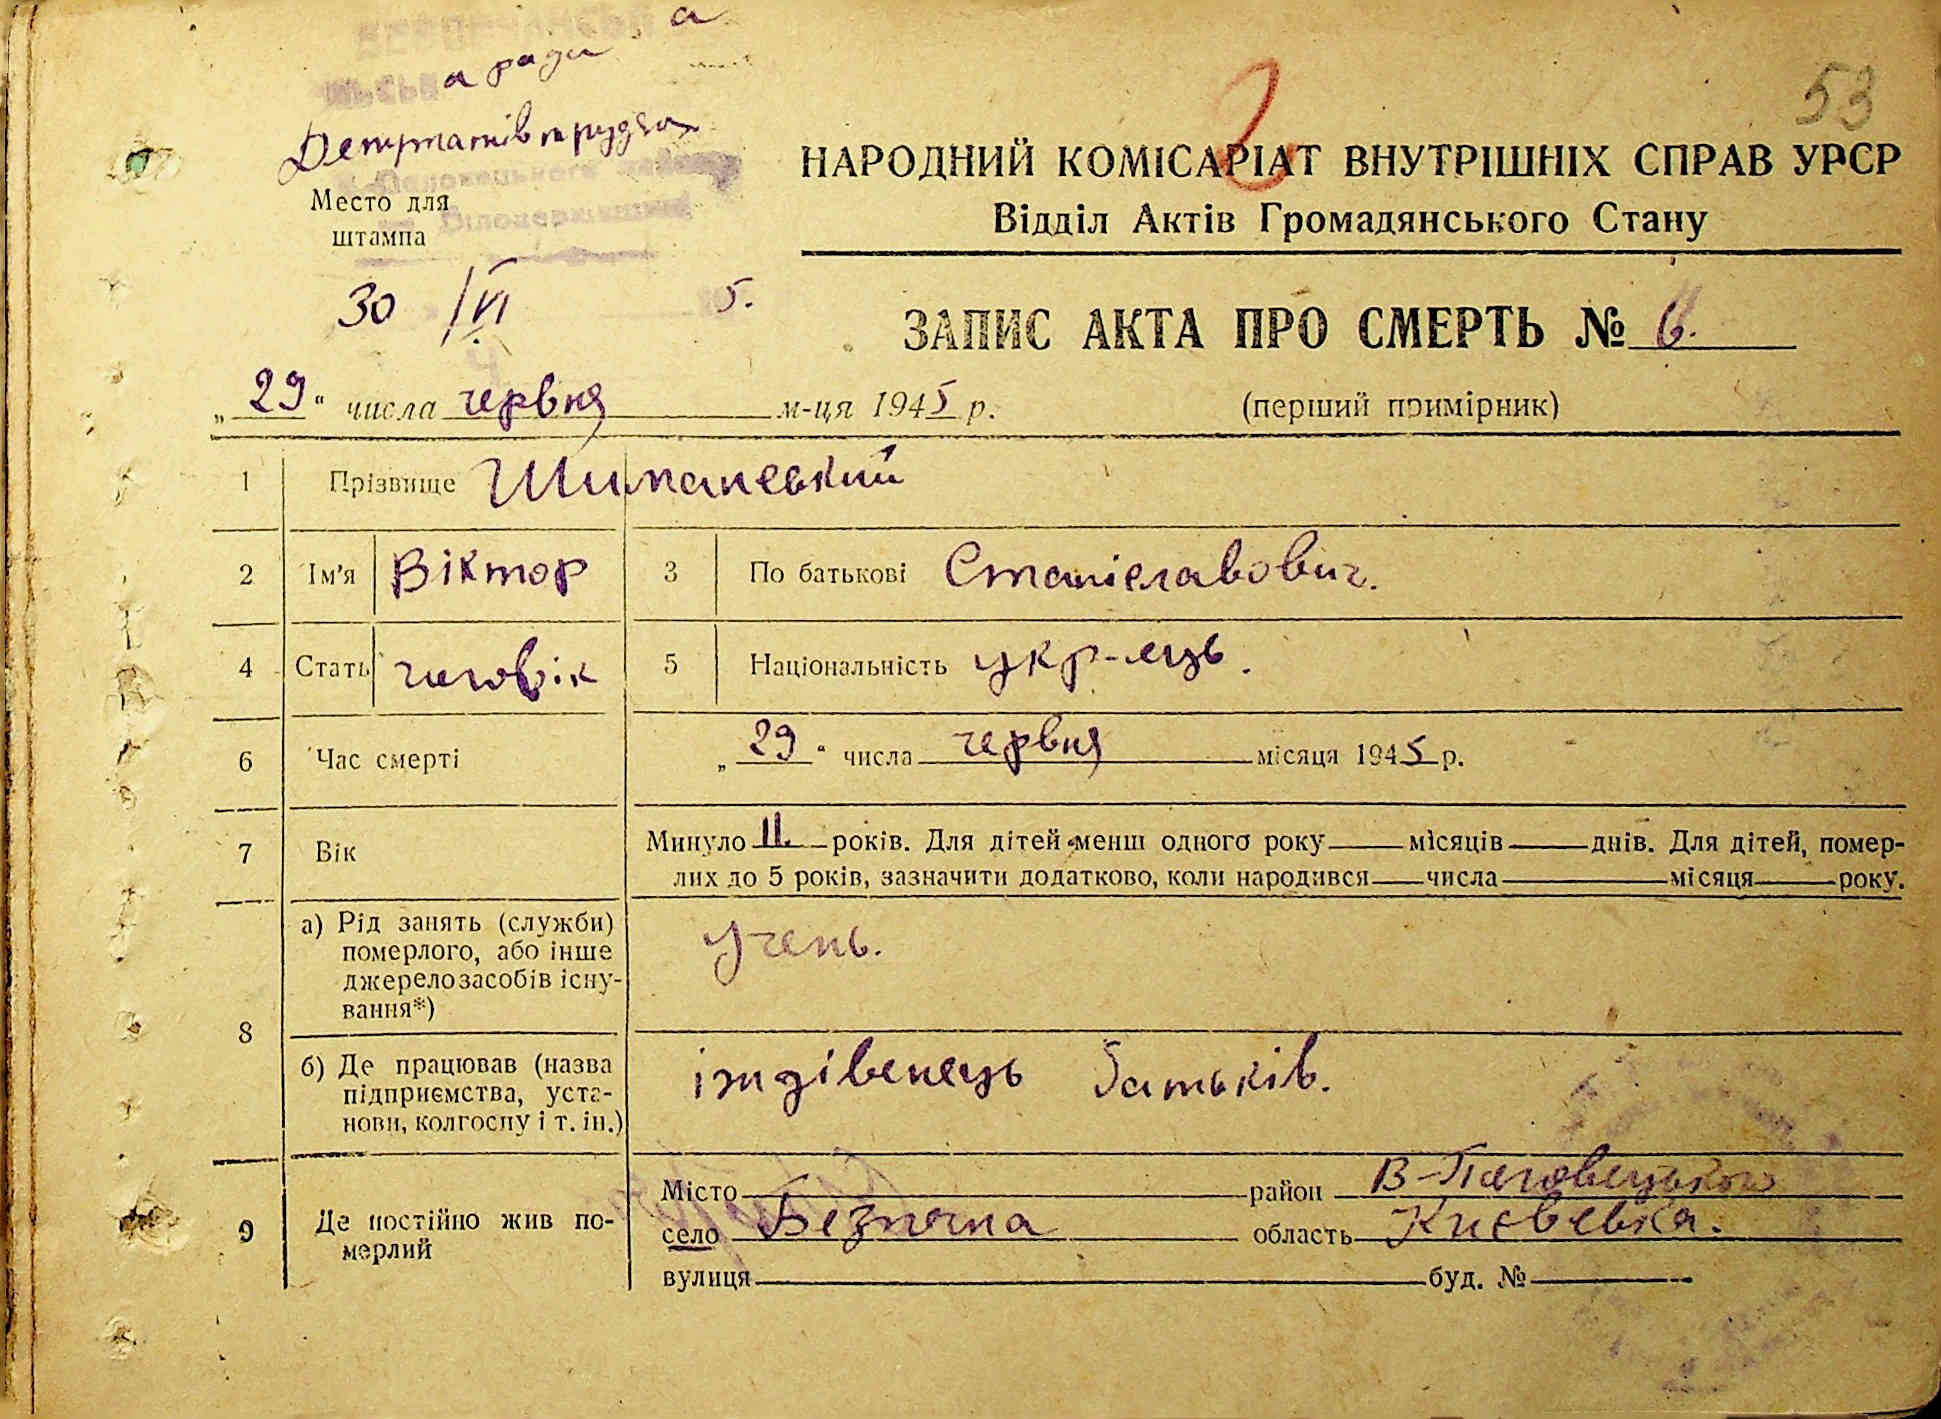 53
а
а ради
Депутатів трудящ
Место для
штампа
30/VI 5.
НАРОДНИЙ КОМІСАРІАТ ВНУТРІШНІХ СПРАВ УРСР
Відділ Актів Громадянського Стану
ЗАПИС АКТА ПРО СМЕРТЬ № 6.
„29“ числа червня м-ця 1945 р.
(перший примірник)
1 Прізвище Шиманський
2 Ім'я Віктор 3 По батькові Станіславович.
4 Стать чоловік 5 Національність укр-лець.
6 Час смерті „29“ числа червня місяця 1945 р.
7 Вік Минуло 11. років. Для дітей менш одного року місяців днів. Для дітей, помер-
лих до 5 років, зазначити додатково, коли народився числа місяця року.
8 а) Рід занять (служби)
померлого, або інше
джерело засобів існу-
вання*)
учень.
б) Де працював (назва
підприємства, уста-
нови, колгоспу і т. ін.)
іждівенець батьків.
9 Де постійно жив по-
мерлий
Місто район В-Половецького
село Безпечна область Києвська.
вулиця буд. №